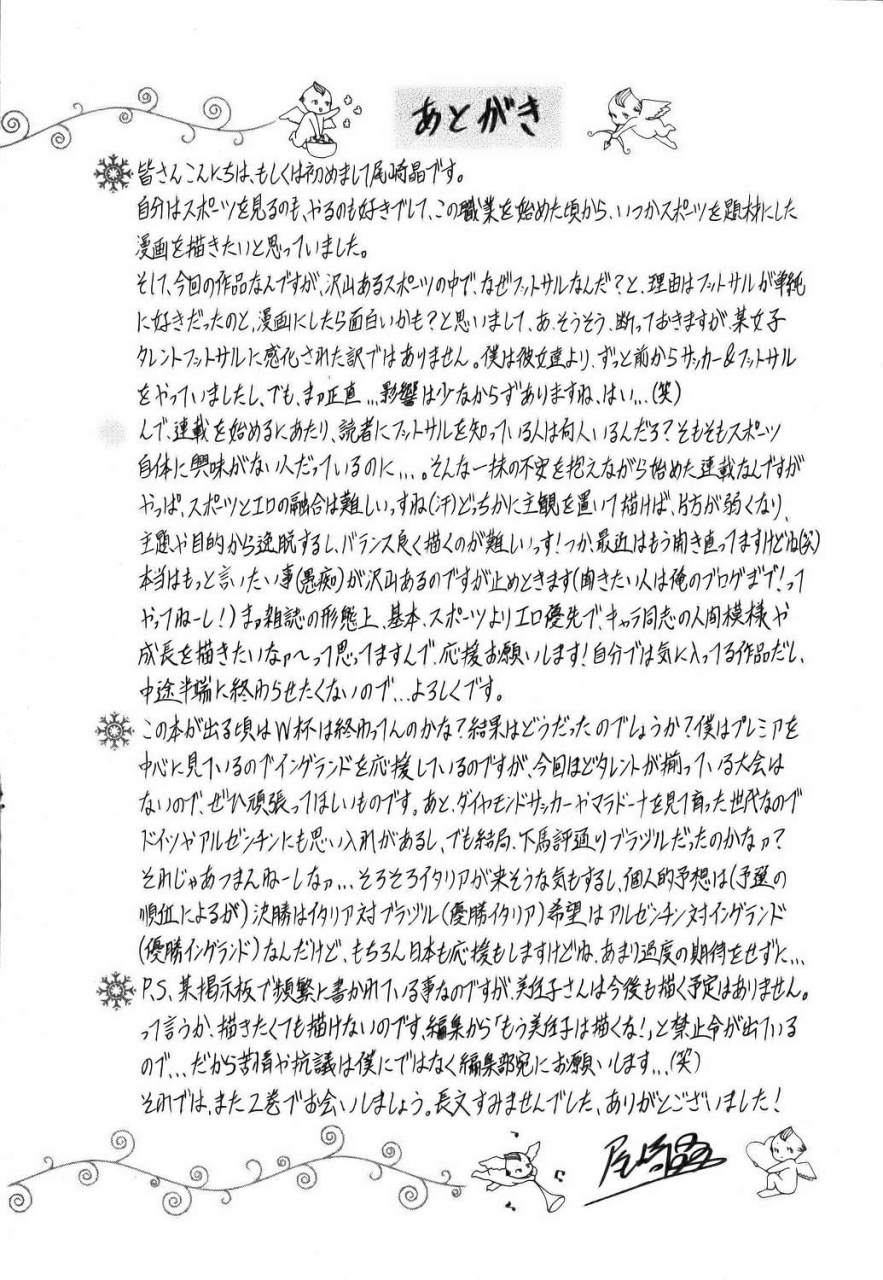 あとがき
皆さんこんにちは、もしくは初めまして尾崎晶です。
自分はスポーツを見るのも、やるのも好きでして、この職業を始めた頃から、いつかスポーツを題材にした
漫画を描きたいと思っていました。
そして、今回の作品なんですが、沢山あるスポーツの中で、なぜフットサルなんだ?と、理由はフットサルが単純
に好きだったのと、漫画にしたら面白いかも?と思いまして、あ、そうそう、断っておきますが、某女子
タレントフットサルに感化された訳ではありません。僕は彼女達より、ずっと前からサッカー&フットサル
をやっていましたし、でも、まァ正直...影響は少なからずありますね、はい...(笑)
んで、連載を始めるにあたり、読者にフットサルを知っている人は何人いるんだろ?そもそもスポーツ
自体に興味がない人だっているのに...。そんな一抹の不安を抱えながら始めた連載なんですが
やっぱ、スポーツとエロの融合は難しいっすね(汗)どっちかに主観を置いて描けば、片方が弱くなり、
主題や目的から逸脱するし、バランス良く描くのが難しいっす!つか、最近はもう開き直ってますけどね(笑)
本当はもっと言いたい事(愚痴)が沢山あるのですが止めときます(聞きたい人は俺のブログまで!って
やってねーし!)まァ雑誌の形態上、基本、スポーツよりエロ優先で、キャラ同志の人間模様や
成長を描きたいなァ〜って思ってますんで、応援お願いします!自分では気に入ってる作品だし、
中途半端に終わらせたくないので...よろしくです。
この本が出る頃はW杯は終わってんのかな?結果はどうだったのでしょうか?僕はプレミアを
中心に見ているのでイングランドを応援しているのですが、今回ほどタレントが揃っている大会は
ないので、ぜひ頑張ってほしいものです。あと、ダイヤモンドサッカーやマラドーナを見て育った世代なので
ドイツやアルゼンチンにも思い入れがあるし、でも結局、下馬評通りブラジルだったのかなァ?
それじゃあつまんねーしなァ...そろそろイタリアが来そうな気もするし、個人的予想は(予選の
順位によるが)決勝はイタリア対ブラジル(優勝イタリア)希望はアルゼンチン対イングランド
(優勝イングランド)なんだけど、もちろん日本も応援もしますけどね、あまり過度の期待をせずに...
P.S、某掲示板で頻繁に書かれている事なのですが、美佐子さんは今後も描く予定はありません。
って言うか、描きたくても描けないのです、編集から「もう美佐子は描くな!」と禁止令が出ている
ので...だから苦情や抗議は僕にではなく編集部宛にお願いします...(笑)
それでは、また2巻でお会いしましょう。長文すみませんでした、ありがとございました!
尾崎晶